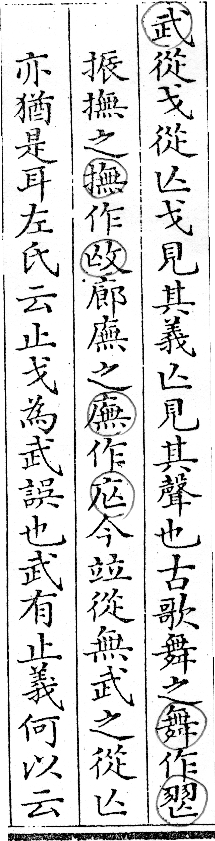 武從戈從亾戈見其義亾見其聲也古歌舞之舞作𦏶
振撫之撫作廊廡之廡作今竝從無武之從亾
亦猶是耳左氏云止戈為武誤也武有止義何以云